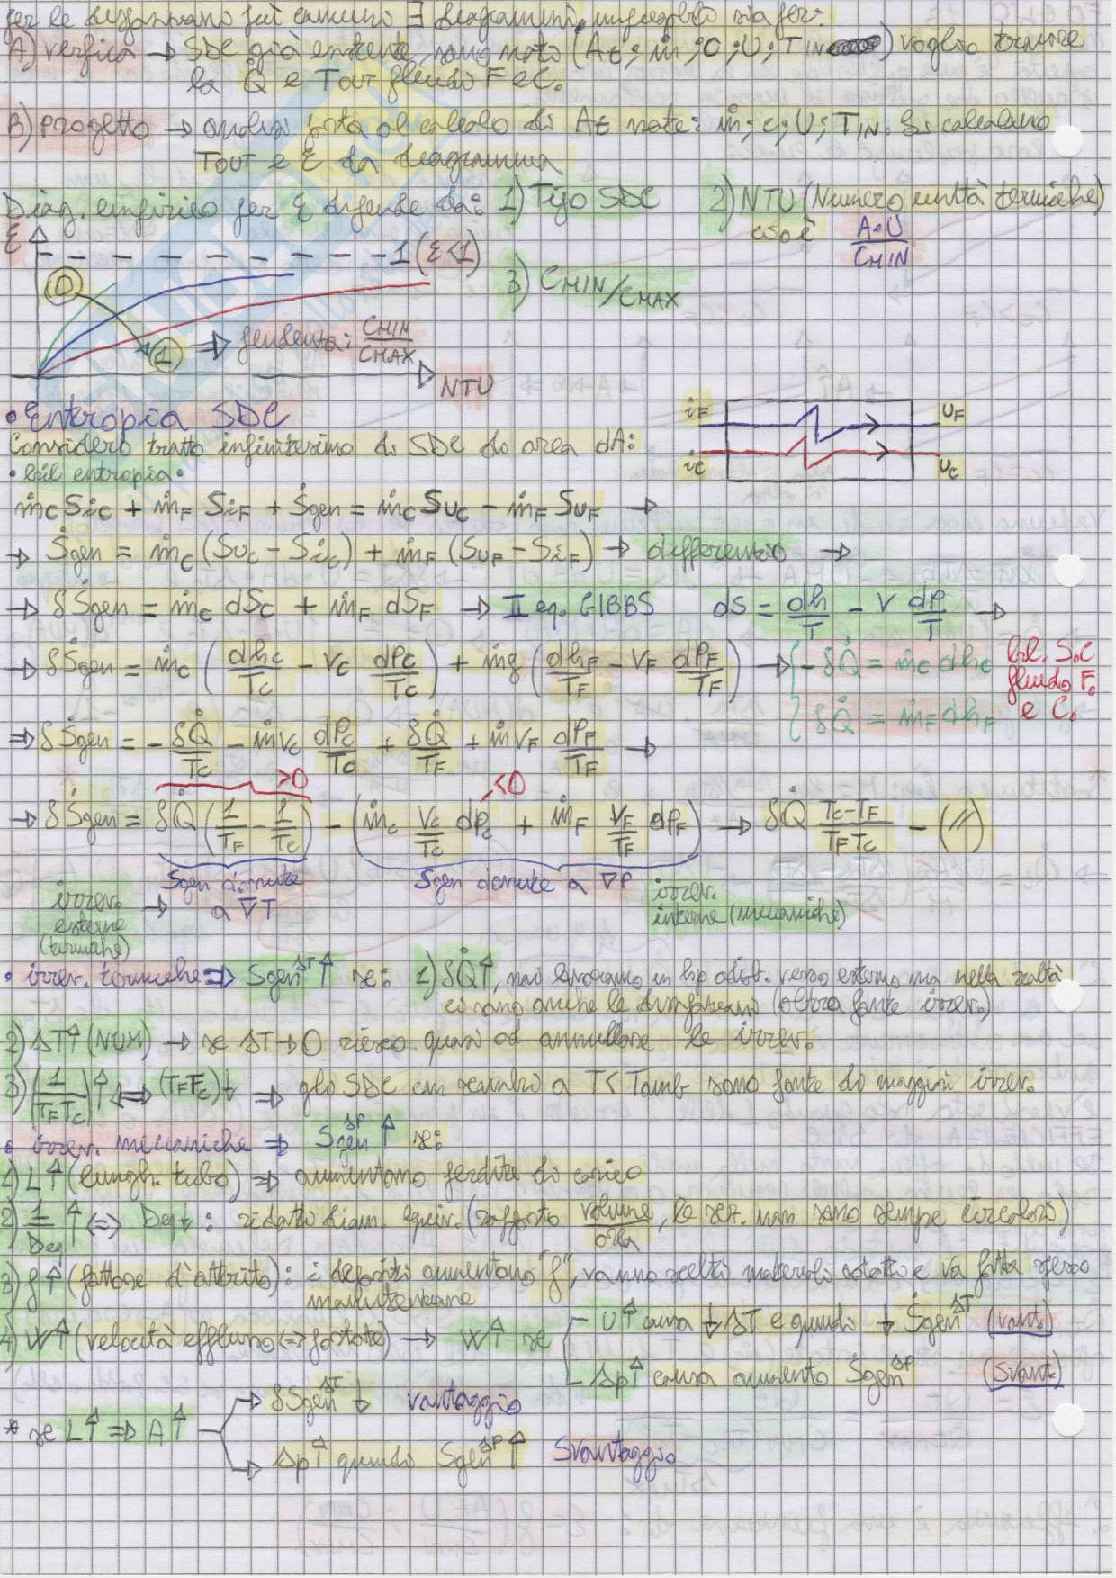 A) verifica → SDC già esistente, sono note (At; ṁ; C; U; TIN) voglio trovare
la Q̇ e Tout fluido F e C.
B) progetto → analisi porta al calcolo di At note: ṁ; c; U; TIN. Si calcolano
Tout e ε da diagramma
Diag. empirico per ε dipende da: 1) Tipo SDC 2) NTU (Numero unità termiche)
cioè A·U/CMIN
ε
1 (ε<1)
3) CMIN/CMAX
0
1 ⇒ pendenza: CMIN/CMAX
NTU
• Entropia SDC
iF UF
Considero tratto infinitesimo di SDC di area dA:
iC UC
• bil entropia •
ṁC SiC + ṁF SiF + Ṡgen = ṁC SUC - ṁF SUF →
→ Ṡgen = ṁC (SUC - SiC) + ṁF (SUF - SiF) → differenzio →
→ δṠgen = ṁC dSC + ṁF dSF → II eq. GIBBS dS = dh/T - V dP/T →
→ δṠgen = ṁC (dhC/TC - VC dPC/TC) + ṁg (dhF/TF - VF dPF/TF) → { -δQ̇ = ṁC dhC bil. S.C
fluido F.
{ δQ̇ = ṁF dhF e C.
⇒ δṠgen = - δQ̇/TC - ṁVC dPC/TC + δQ̇/TF + ṁVF dPF/TF →
>0 <0
→ δṠgen = δQ̇ (1/TF - 1/TC) - (ṁC VC/TC dPC + ṁF VF/TF dPF) → δQ̇ TC-TF/TF TC - (//)
Sgen dovute Sgen dovute a ∇P irrev.
irrev. → a ∇T interne (meccaniche)
esterne
(termiche)
• irrev. termiche ⇒ Sgen^ΔT ↑ se: 1) δQ̇↑, noi lavoriamo in hp adiab. verso esterno ma nella realtà
ci sono anche le dispersioni (altra fonte irrev.)
2) ΔT↑ → se ΔT→0 riesco quasi ad annullare le irrev.
3) (1/TF TC)↑ ⇔ (TF TC)↓ ⇒ gli SDC con scambio a T<Tamb sono fonte di maggiori irrev.
• irrev. meccaniche ⇒ Sgen^ΔP ↑ se:
1) L↑ (lungh. tubo) ⇒ aumentano perdite di carico
2) 1/Deq ↑ ⇔ Deq↓: ridotto diam. equiv. (rapporto volume/area, le sez. non sono sempre circolari)
3) f↑ (fattore d'attrito): i depositi aumentano "f", vanno scelti materiali adatti e va fatta spesso
manutenzione
4) W↑ (velocità efflusso ⇔ portate) → W↑ se - U↑ causa ↓ΔT e quindi ↓ Ṡgen^ΔT (vant.)
- Δp↑ causa aumento Sgen^ΔP (svant.)
δSgen^ΔT ↓ vantaggio
* se L↑ ⇒ A↑
Δp↑ quindi Sgen^ΔP ↑ Svantaggio